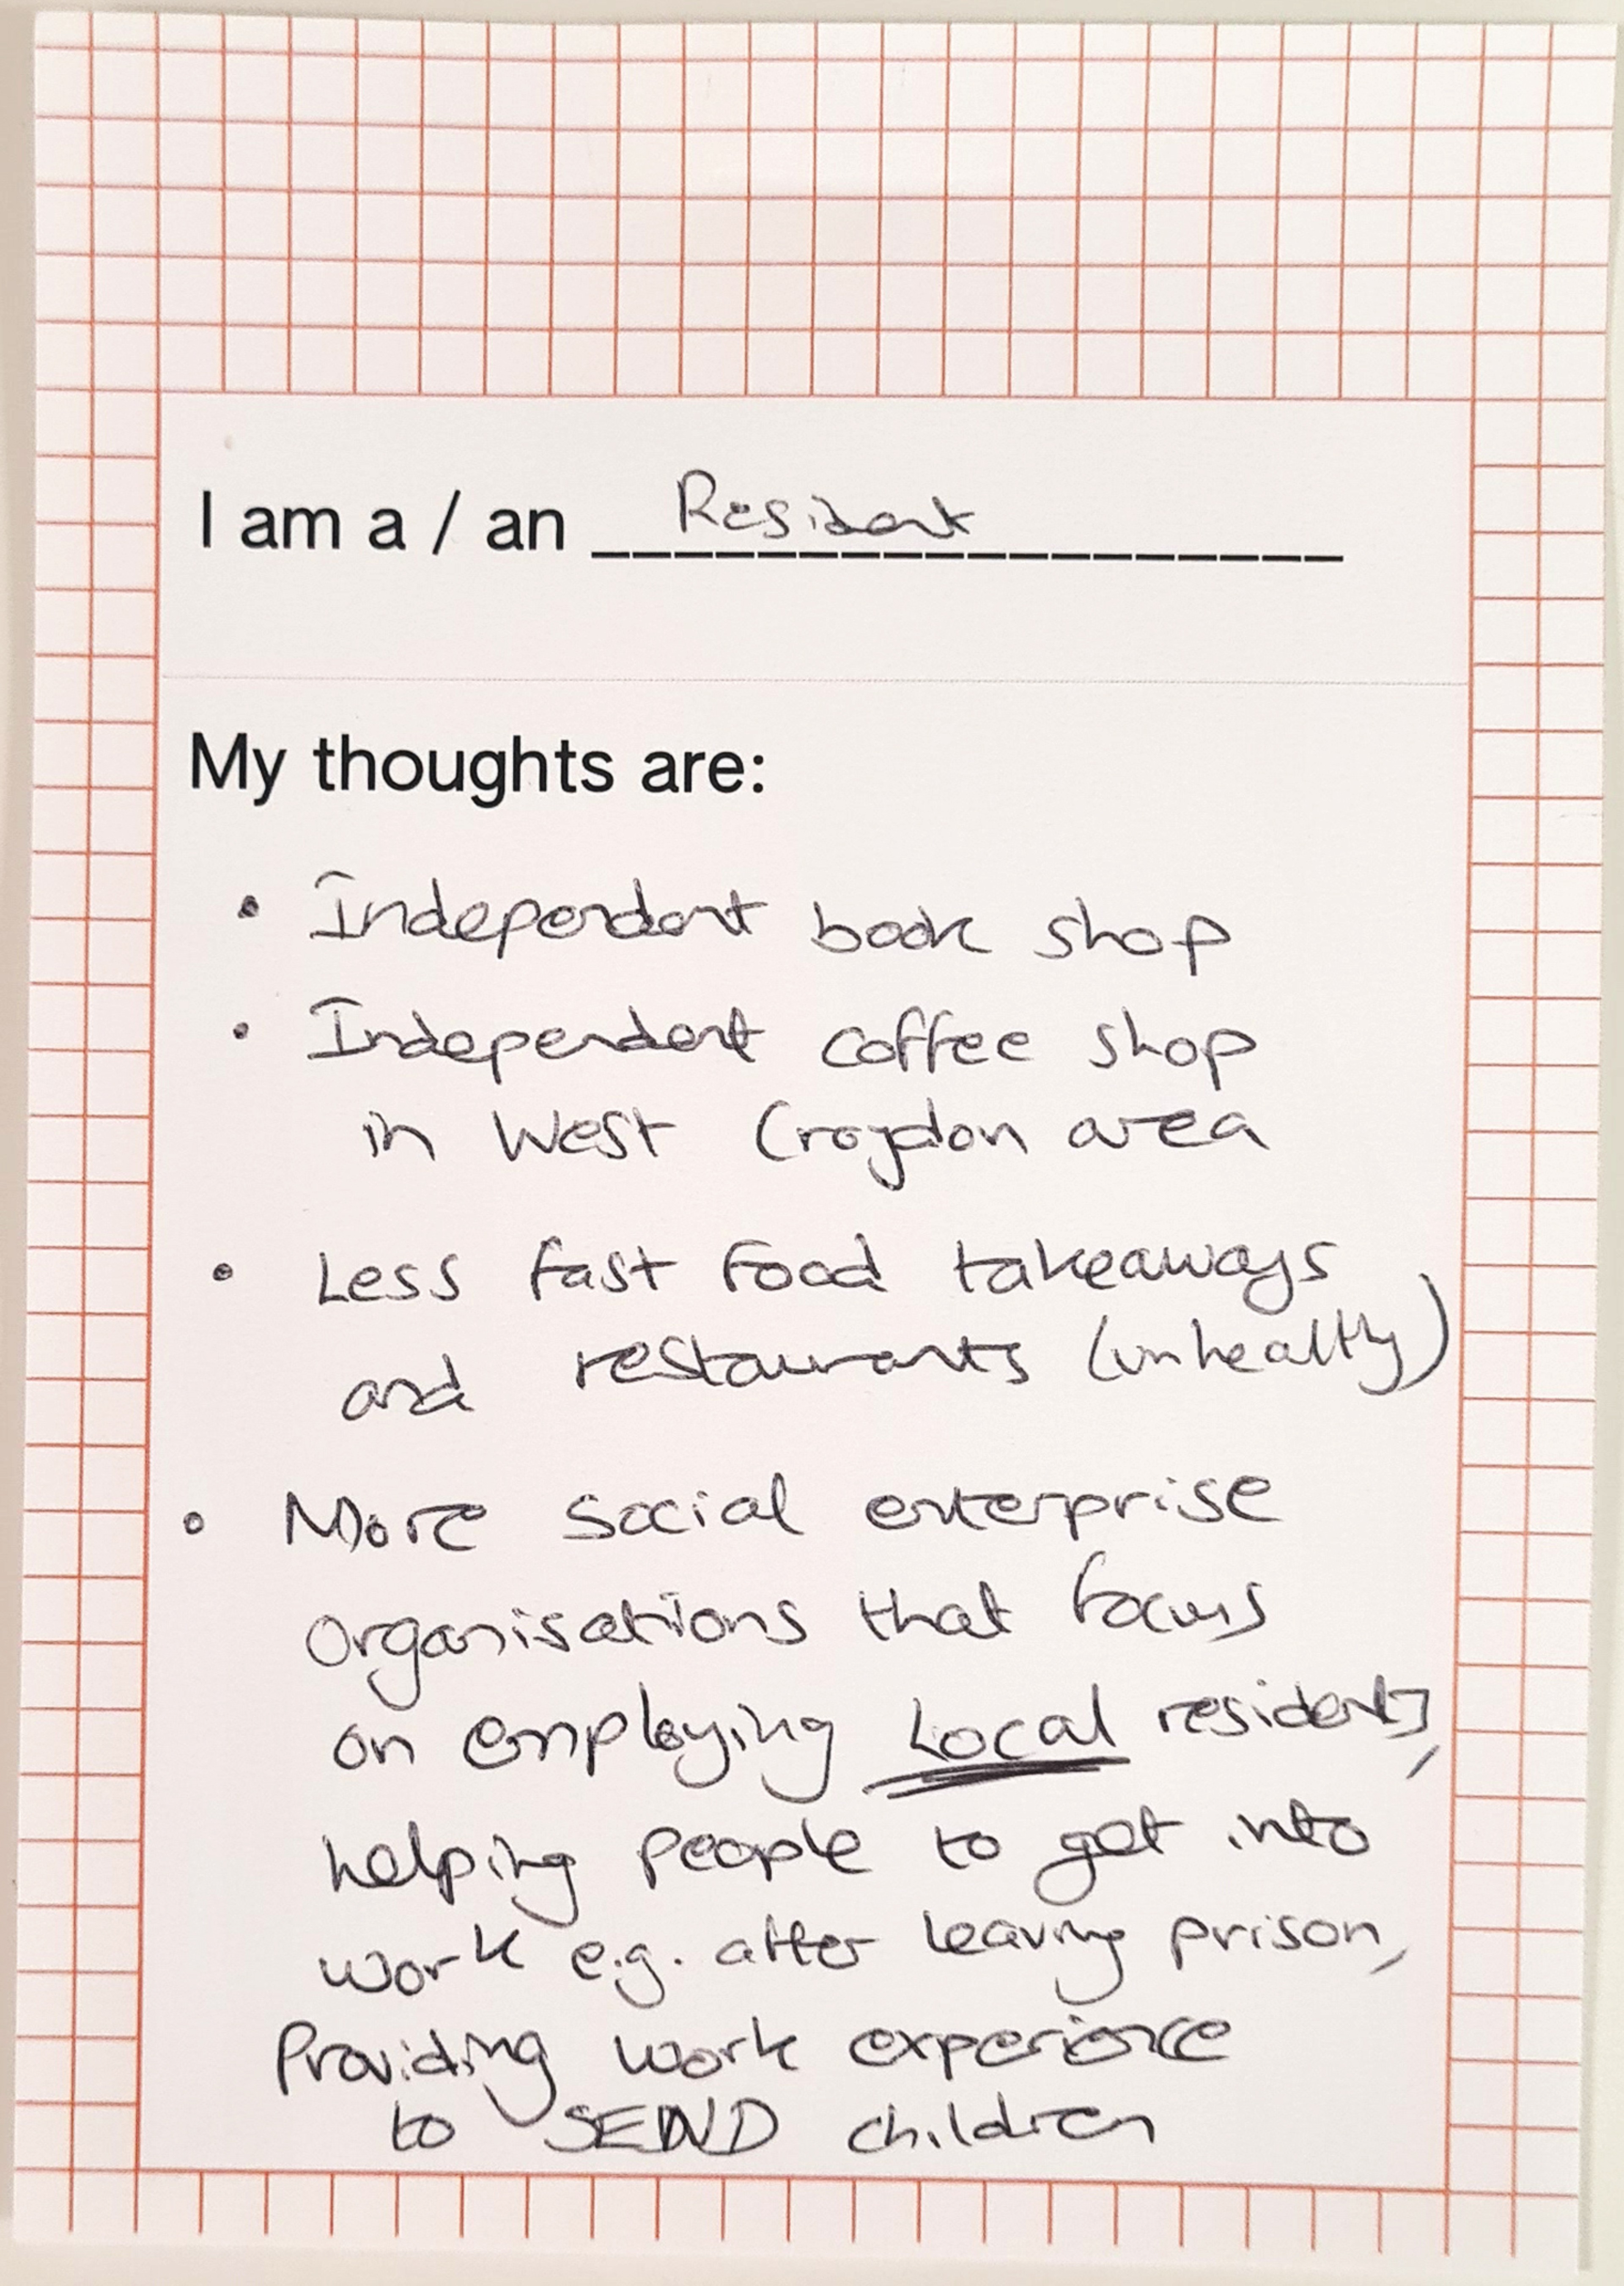 I am a / an Resident
My thoughts are:
• Independent book shop
• Independent coffee shop
in West Croydon area
• Less fast food takeaways
and restaurants (unhealthy)
• More social enterprise
organisations that focus
on employing Local residents,
helping people to get into
work e.g. after leaving prison,
Providing work experience
to SEND children